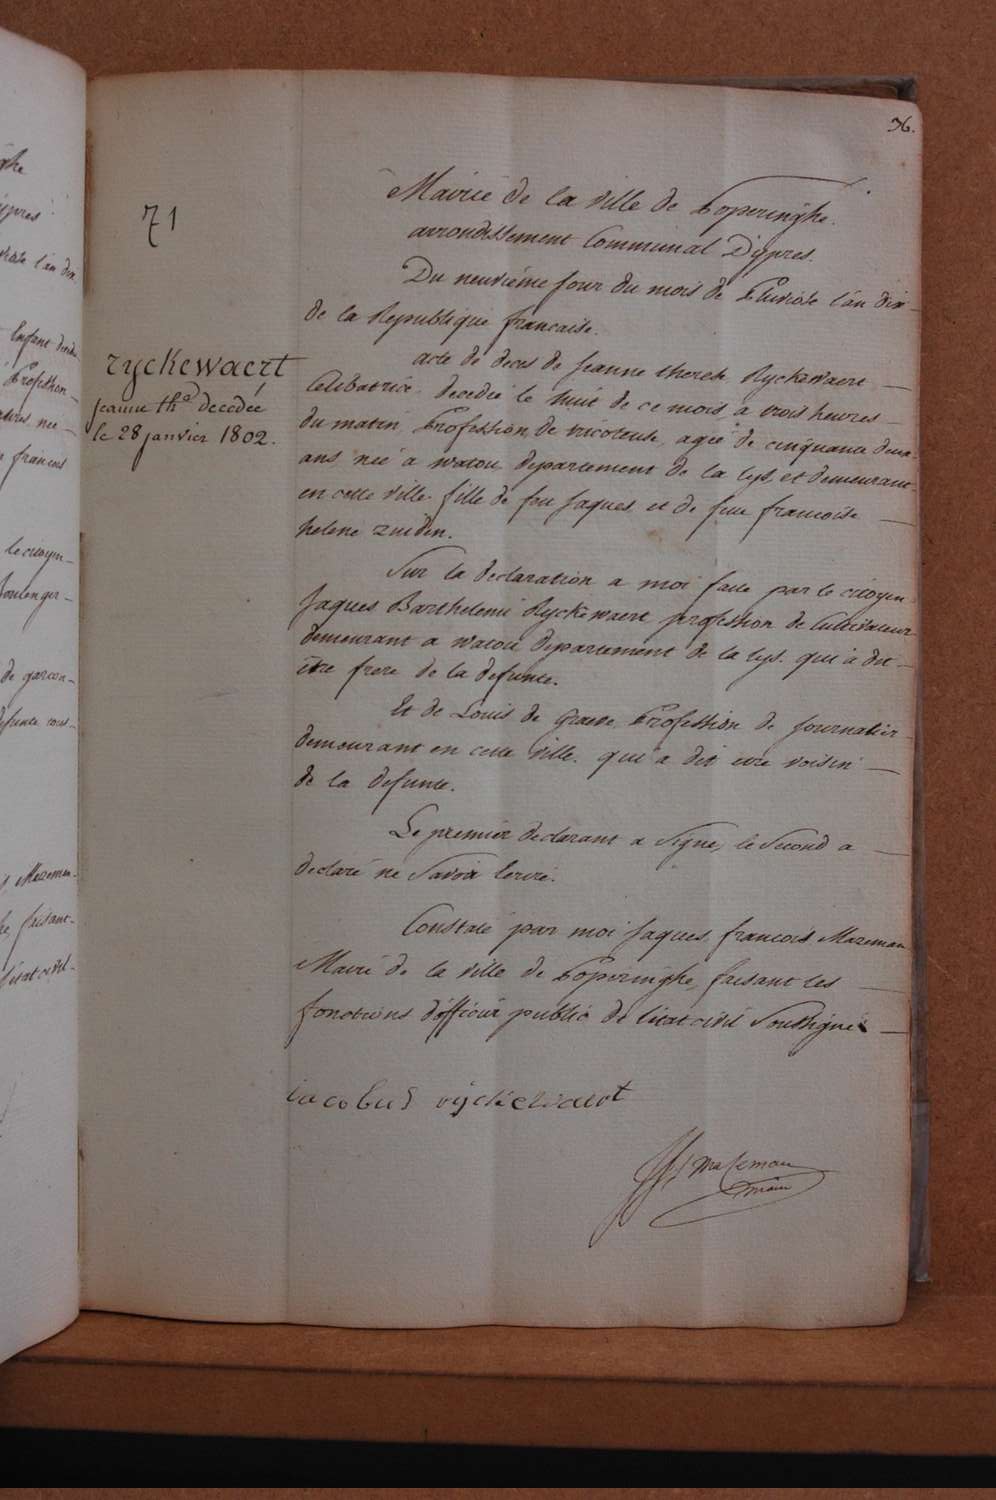 36.
71
Mairie de la ville de Poperinghe.
arrondissement Communal D'ypres.
Du neuvième jour du mois de Pluviose l'an dix
de la Republique francaise.
ryckewaert
jeanne th.a decedée
le 28 janvier 1802.
acte de deces de Jeanne therese Ryckewaert
Celibatrice decedée le huit de ce mois a trois heures
du matin, Profession de tricoteuse, agée de cinquante deux
ans, née a watou departement de la Lys, et demeurant
en cette ville. fille de feu Jaques et de feue francoise
helene zuiden.
Sur la declaration a moi faite par le citoyen
Jaques Barthelemi Ryckewaert profession de Cultivateur
demeurant a watou departement de la Lys. qui a dit
être frere de la defunte.
Et de Louis de Graeve Profession de Journalier
demeurant en cette ville. qui a dit etre voisin
de la defunte.
Le premier declarant a Signe, le Second a
declaré ne Savoir Ecrire.
Constaté par moi Jaques francois Mazeman
Maire de la ville de Poperinghe, faisant les
fonctions d'officier public de l'état civil Soussigné
iacobus ryckewaert
JF Mazeman
maire
ypres
l'an dix
Enfant
Profession
née
francois
le citoyen
Boulenger
de garcon
defunte
Mazeman
faisant
l'état civil